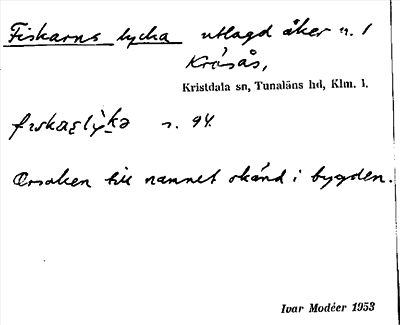 Fiskarns lycka utlagd åker n. 1
Kråsås,
Kristdala sn, Tunaläns hd, Klm. l.
s. 94.
Orsaken till namnet okänd i bygden.
Ivar Modéer 1953